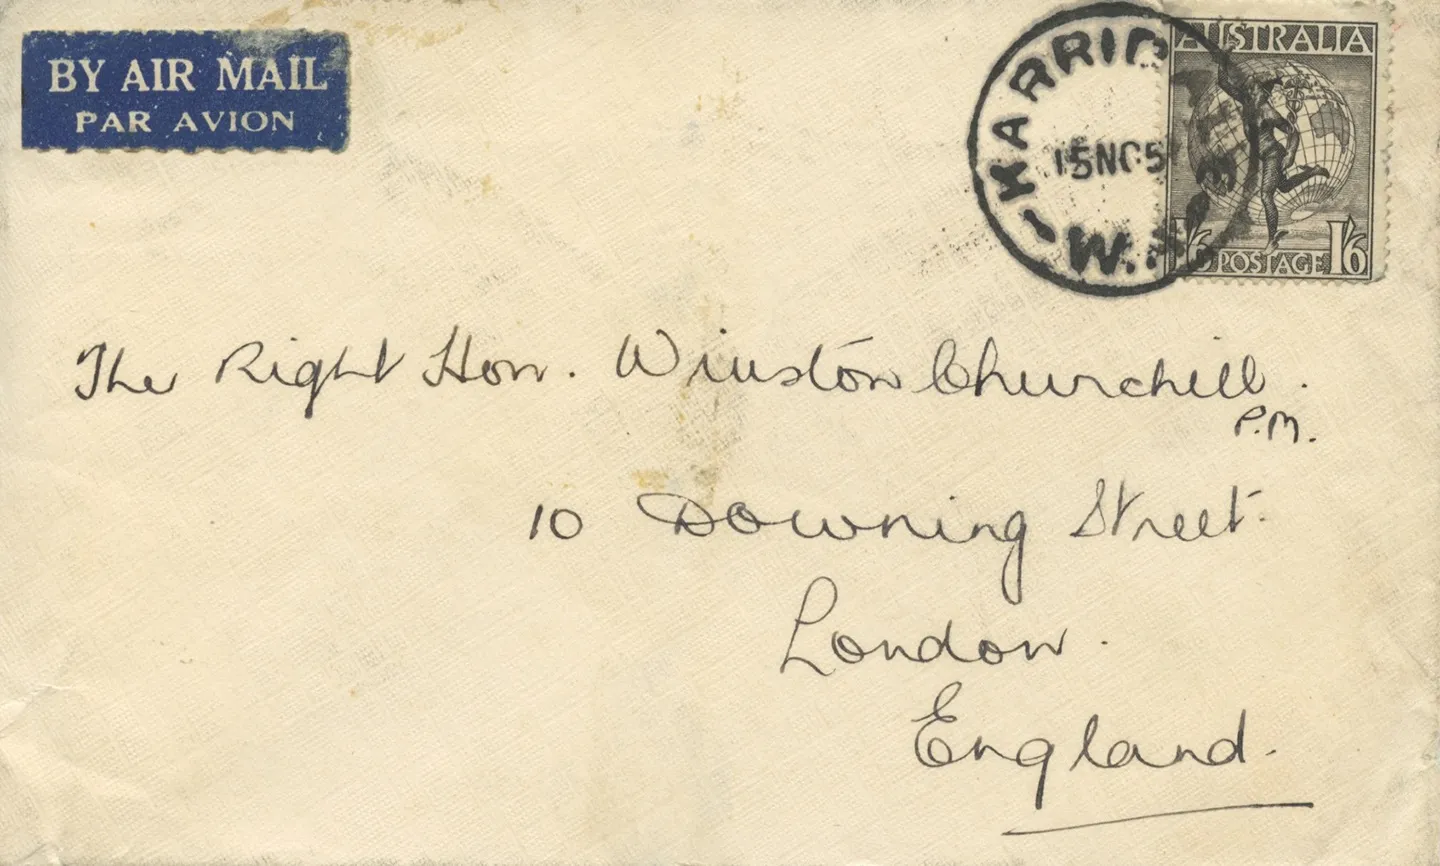 BY AIR MAIL
PAR AVION
15NO5
W.A.
AUSTRALIA
1/6 POSTAGE 1/6
The Right Hon. Winston Churchill.
P.M.
10 Downing Street.
London.
England.